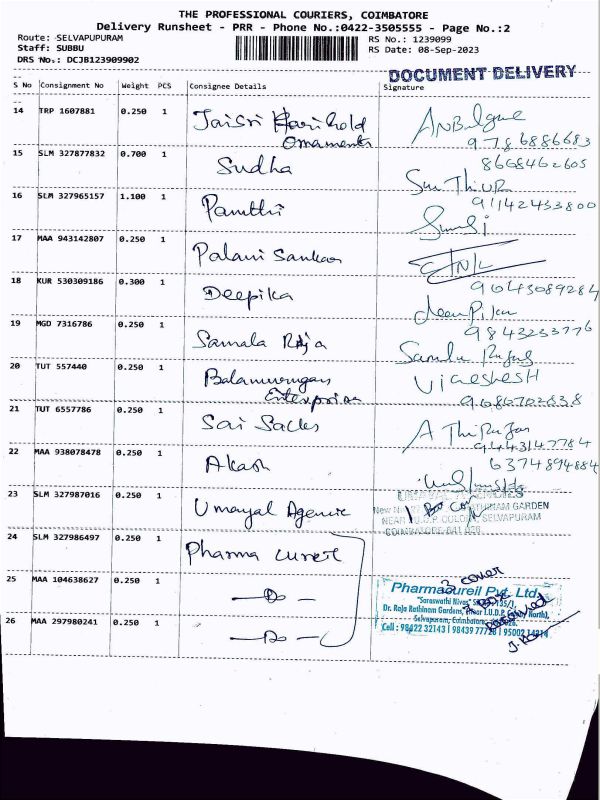 THE PROFESSIONAL COURIERS, COIMBATORE
Delivery Runsheet - PRR - Phone No.:0422-3505555 - Page No.:2
Route: SELVAPUPURAM
RS No.: 1239099
Staff: SUBBU
RS Date: 08-Sep-2023
DRS No.: DCJB123909902
DOCUMENT DELIVERY
S No Consignment No Weight PCS Consignee Details Signature
14 TRP 1607881 0.250 1 Jaisri Harihold
Ornaments
9786886683
15 SLM 327877832 0.700 1 Sudha 8668462605
16 SLM 327965157 1.100 1 Pamthi 91142433800
17 MAA 943142807 0.250 1 Palani Sankar
18 KUR 530309186 0.300 1 Deepika 9043089284
19 MGD 7316786 0.250 1 Samala Raja 9843233776
20 TUT 557440 0.250 1 Balamurugan VigneshesH
Enterprise
21 TUT 6557786 0.250 1 Sai Sacks
9443147784
22 MAA 938078478 0.250 1 Akash 6374894884
23 SLM 327987016 0.250 1 Umayal Agencie
GARDEN
SELVAPURAM
24 SLM 327986497 0.250 1 Pharma cureil
25 MAA 104638627 0.250 1 -D-
3 cover
Pharmacureil Pvt. Ltd.
"Saraswathi Nivas"
Dr. Raja Rathinam Gardens, Near I.U.D.P. Colony North),
Selvapuram, Coimbatore
26 MAA 297980241 0.250 1 -D-
Cell : 98422 32143 | 98439 77728 | 95002 14914